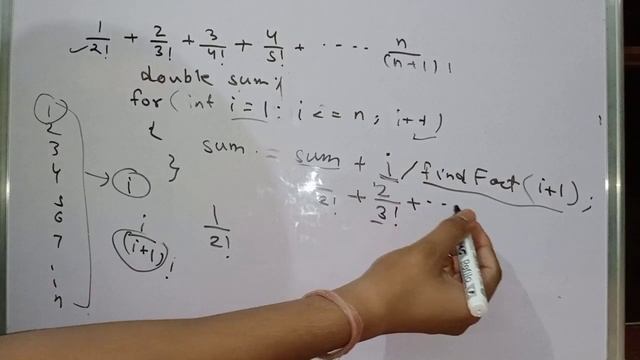 1/2! + 2/3! + 3/4! + 4/5! + ---- n/(n+1)!
double sum;
for(int i=1: i<=n; i++)
{
sum = sum + i/findFact(i+1);
}
1/2! + 2/3! + ---
1
2
3
4
5
6
7
.
.
n
i
i/(i+1)!
1/2!